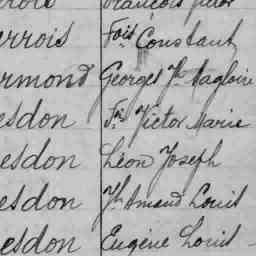 François Victor
errois Fois. Constant
ermond Georges Jh. Magloire
esdon Fr. Victor Marie
esdon Léon Joseph
esdon Jh. Amand Louis
esdon Eugène Louis